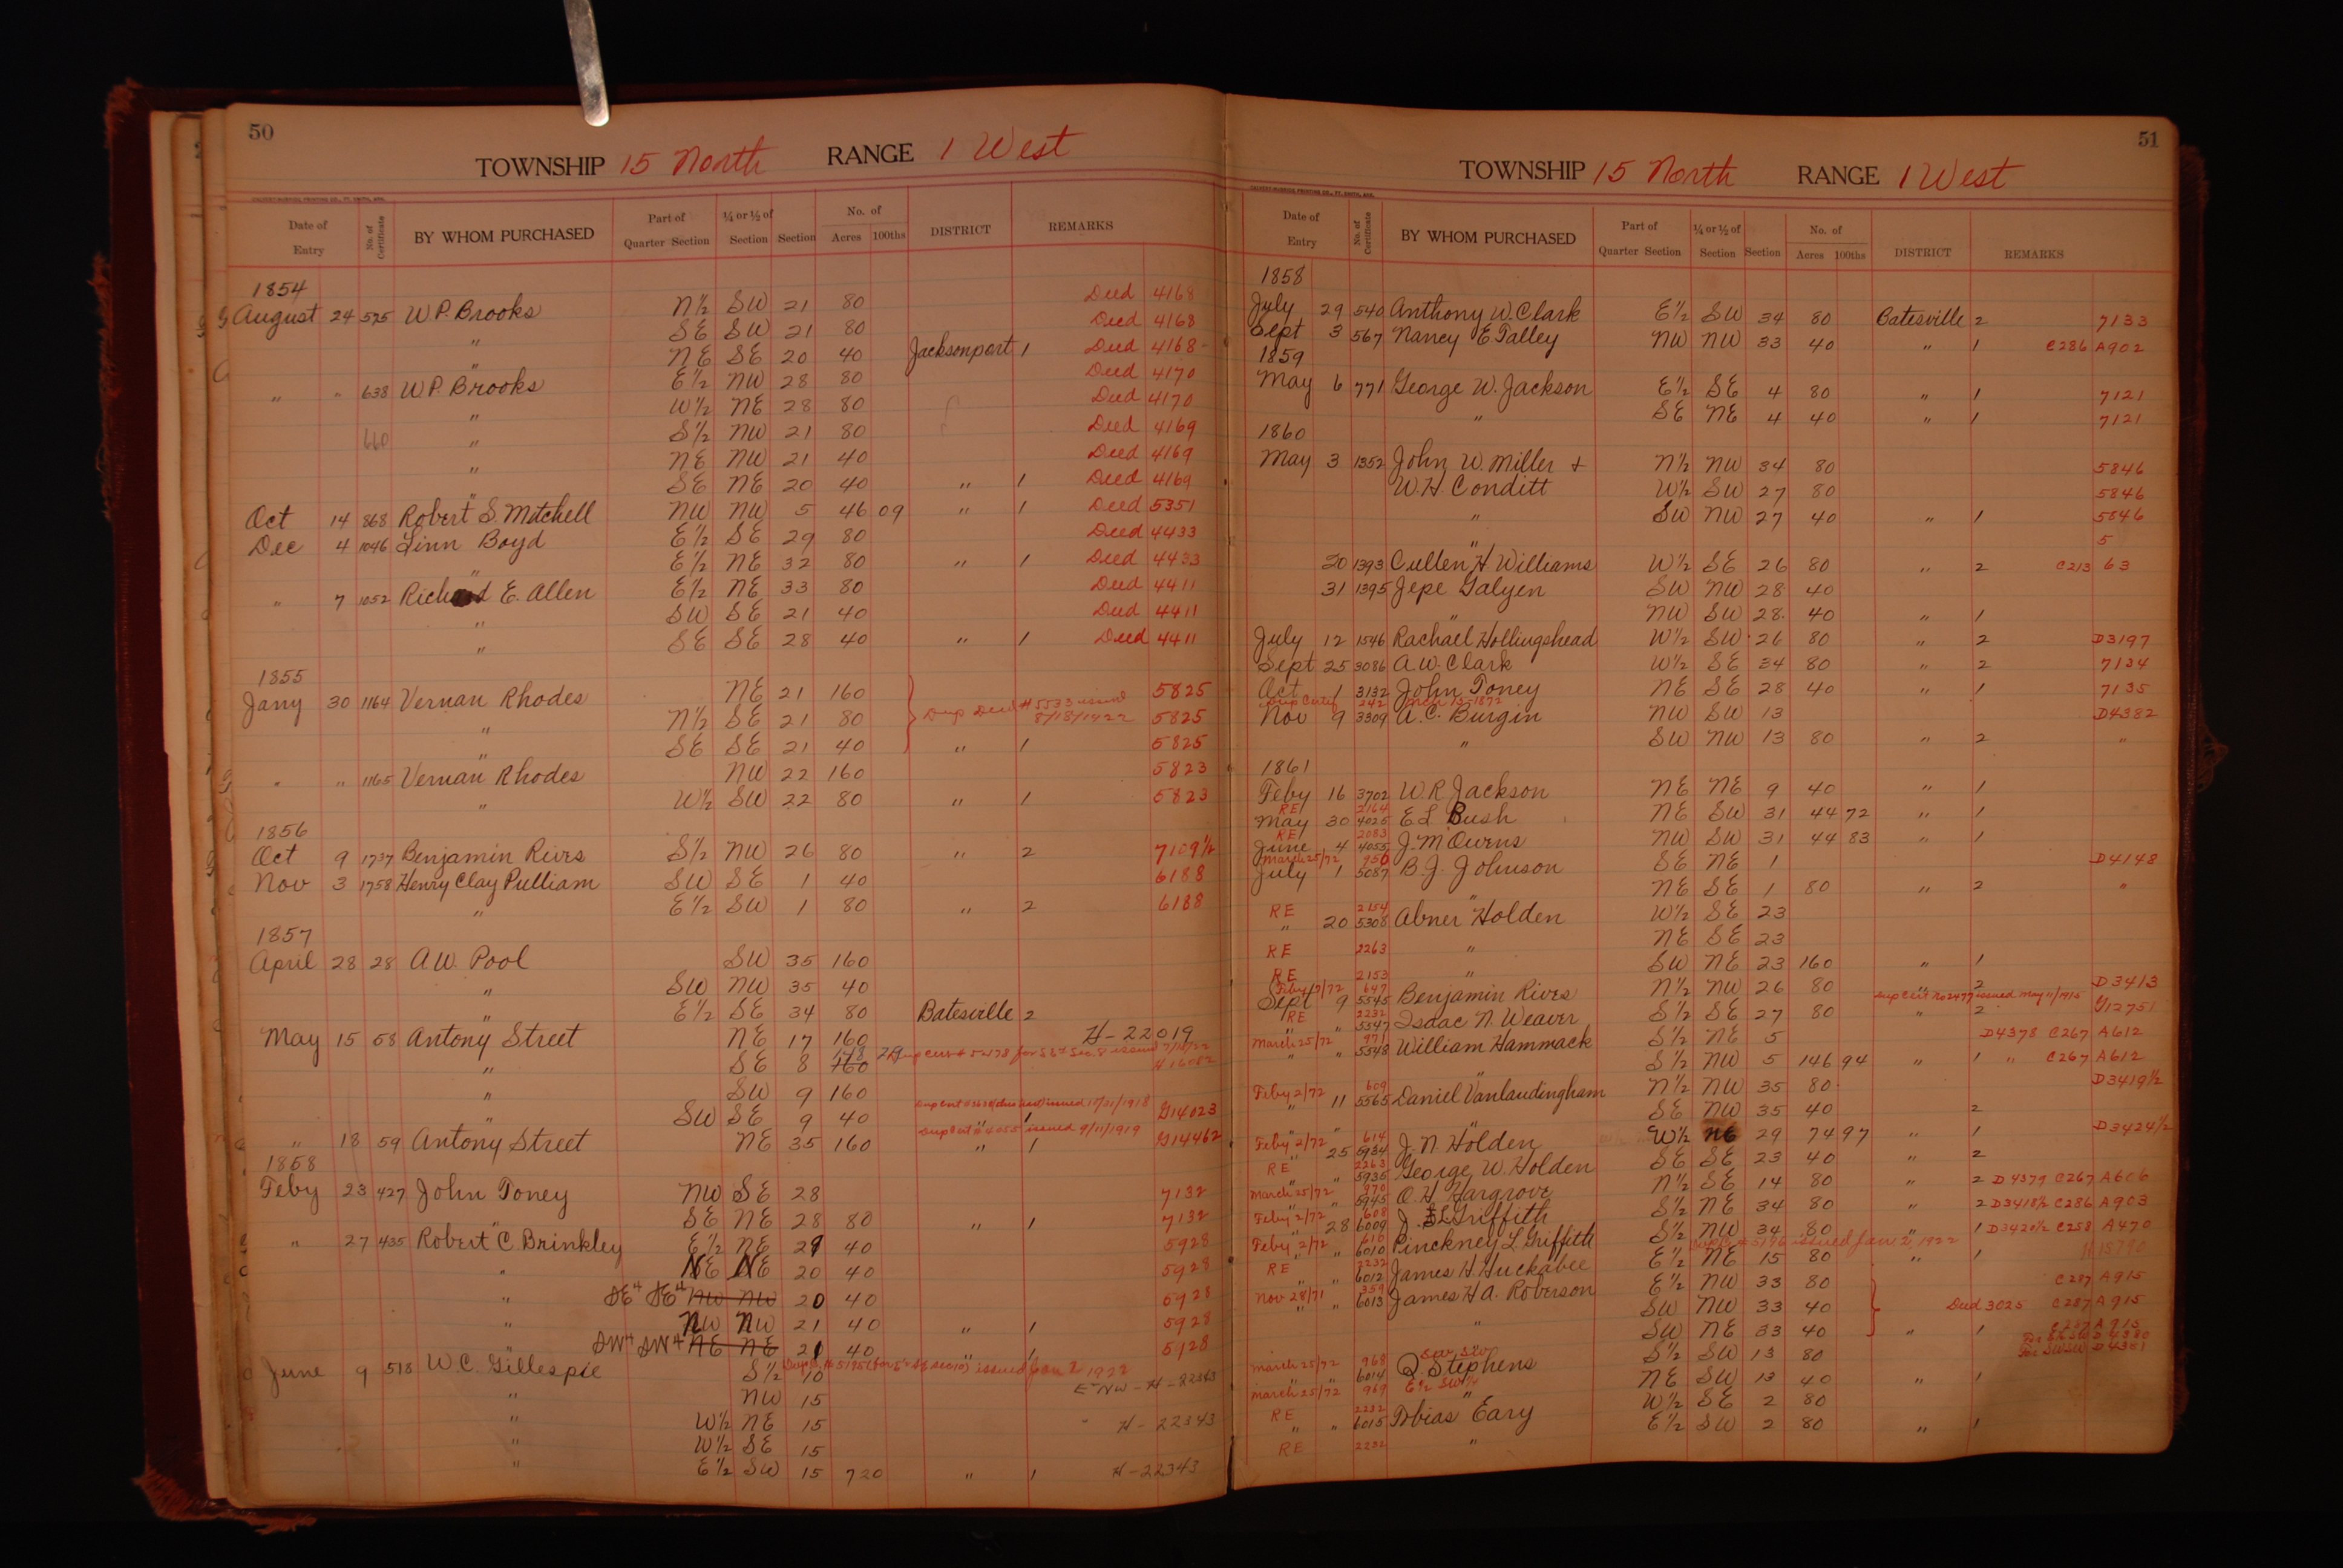 50
TOWNSHIP 15 North RANGE 1 West
CALVERT-McBRIDE PRINTING CO., FT. SMITH, ARK.
Date of Entry No. of Certificate BY WHOM PURCHASED Part of Quarter Section ¼ or ½ of Section Section No. of Acres 100ths DISTRICT REMARKS
1854
August 24 525 W.P. Brooks N½ SW 21 80 Deed 4168
" SE SW 21 80 Deed 4168
" NE SE 20 40 Jacksonport 1 Deed 4168
" " 638 W.P. Brooks E½ NW 28 80 Deed 4170
" W½ NE 28 80 Deed 4170
660 " S½ NW 21 80 Deed 4169
" NE NW 21 40 Deed 4169
" SE NE 20 40 " 1 Deed 4169
Oct 14 868 Robert S. Mitchell NW NW 5 46 09 " 1 Deed 5351
Dec 4 1046 Linn Boyd E½ SE 29 80 Deed 4433
" E½ NE 32 80 " 1 Deed 4433
" 7 1052 Richard E. Allen E½ NE 33 80 Deed 4411
" SW SE 21 40 Deed 4411
" SE SE 28 40 " 1 Deed 4411
1855
Jany 30 1164 Vernan Rhodes NE 21 160 5825
" N½ SE 21 80 Dup Deed # 5533 issued 8/18/1922 5825
" SE SE 21 40 " 1 5825
" " 1165 Vernan Rhodes NW 22 160 5823
" W½ SW 22 80 " 1 5823
1856
Oct 9 1737 Benjamin Rives S½ NW 26 80 " 2 7109½
Nov 3 1758 Henry Clay Pulliam SW SE 1 40 6188
" E½ SW 1 80 " 2 6188
1857
April 28 28 A.W. Pool SW 35 160
" SW NW 35 40
" E½ SE 34 80 Batesville 2
May 15 58 Antony Street NE 17 160 H-22019
" SE 8 160
" SW 9 160
" SW SE 9 40 " 1 G14023
" 18 59 Antony Street NE 35 160 " 1 G14462
1858
Feby 23 427 John Toney NW SE 28 7132
" SE NE 28 80 " 1 7132
" 27 435 Robert C. Brinkley E½ NE 29 40 5928
" NE NE 20 40 5928
" SE4 SE4 NW NW 20 40 5928
" NW NW 21 40 " 1 5928
" SW4 SW4 NE NE 21 40 " 1 5128
June 9 518 W.C. Gillespie S½ 10 issued Jan 2 1922
" NW 15 E½ NW - H - 22343
" W½ NE 15 H-22343
" W½ SE 15
" E½ SW 15 720 " 1 H-22343
51
TOWNSHIP 15 North RANGE 1 West
CALVERT-McBRIDE PRINTING CO., FT. SMITH, ARK.
Date of Entry No. of Certificate BY WHOM PURCHASED Part of Quarter Section ¼ or ½ of Section Section No. of Acres 100ths DISTRICT REMARKS
1858
July 29 540 Anthony W. Clark E½ SW 34 80 Batesville 2 7133
Sept 3 567 Nancy E Talley NW NW 33 40 " 1 C286 A902
1859
May 6 771 George W. Jackson E½ SE 4 80 " 1 7121
" SE NE 4 40 " 1 7121
1860
May 3 1352 John W. Miller + N½ NW 34 80 5846
W.H. Conditt W½ SW 27 80 5846
" SW NW 27 40 " 1 5846
5
20 1393 Cullen H. Williams W½ SE 26 80 " 2 C213 63
31 1395 Jepe Galyen SW NW 28 40
" NW SW 28 40 " 1
July 12 1546 Rachael Hollingshead W½ SW 26 80 " 2 D3197
Sept 25 3086 A.W. Clark W½ SE 34 80 " 2 7134
Oct 1 3132 John Toney NE SE 28 40 " 1 7135
Dup Certif 242 Mch 15-1872
Nov 9 3309 A.C. Burgin NW SW 13 D4382
" SW NW 13 80 " 2 "
1861
Feby 16 3702 W.R. Jackson NE NE 9 40 " 1
RE 2164
May 30 4025 E L Bush NE SW 31 44 72 " 1
RE 2083
June 4 4055 J.M. Owens NW SW 31 44 83 " 1
March 25/72 950
July 1 5087 B.J. Johnson SE NE 1 D4148
" NE SE 1 80 " 2 "
RE 2154
" 20 5308 Abner Holden W½ SE 23
RE 2263 " NE SE 23
RE 2153 " SW NE 23 160 " 1
Feby 2/72 647
Sept 9 5545 Benjamin Rives N½ NW 26 80 " 2 D3413
Dup Cert No 2477 issued May 11/1916
RE 2232
" " 5547 Isaac N. Weaver S½ SE 27 80 " 2 G12751
March 25/72 971
" " 5548 William Hammack S½ NE 5 D4378 C267 A612
" S½ NW 5 146 94 " 1 " C267 A612
Feby 2/72 609
" 11 5565 Daniel Vanlaudingham N½ NW 35 80 D3419½
" SE NW 35 40 2
Feby 2/72 614
" 25 5934 J.N. Holden W½ NE 29 74 97 " 1 D3424½
RE 2263
" " 5935 George W. Holden SE SE 23 40 " 2
March 25/72 970
" " 5945 O.H. Hargrove N½ SE 14 80 " 2 D4377 C267 A606
Feby 2/72 608
" 28 6009 J. L Griffith S½ NE 34 80 " 2 D3418½ C286 A903
Feby 2/72 610
" " 6010 Pinckney L. Griffith S½ NW 34 80 " 1 D3420½ C258 A470
issued Jan 2, 1922
RE 2232
" " 6012 James H. Huckabee E½ NE 15 80 " 1
Nov 28/71 359
" " 6013 James H.A. Roberson E½ NW 33 80 C287 A915
" SW NW 33 40 Deed 3025 C287 A915
" SW NE 33 40 " 1 C287 A915
March 25/72 968
" " 6014 Q. Stephens S½ SW 13 80
March 25/72 969 E½ SW¼
" NE SW 13 40 " 1
RE 2232
" " 6015 Tobias Eary W½ SE 2 80
RE 2232 " E½ SW 2 80 " 1